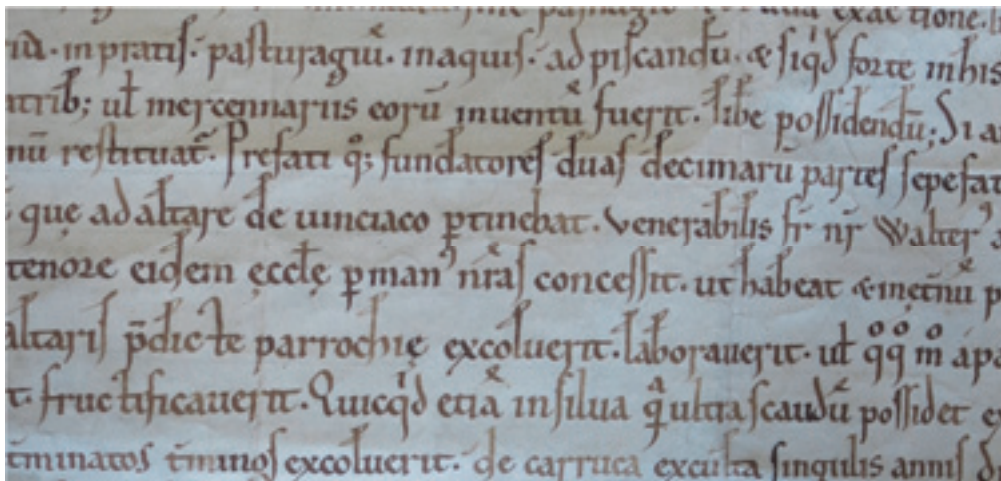 exactione.
in pratis. pasturagiū. in aquis. ad piscandū. & siqͥd forte in his
atrib; ul̄ mercennariis eorū inuentū fuerit. lib̄e possidendū; Si a
nū restituat᷑. Prefati qͦ; fundatores duas decimarū partes sepefat
que ad altare de uinciaco ꝑtinebat. Venerabilis fr̄ nr̄ Walterꝰ
tenore eidem ęccl̄ę ꝑ manꝰ nr̄as concessit. ut habeat & in ęt̄nū p
altaris p̄dicte parrochię excoluerit. laborauerit. ul̄ qͦqͦ mͦ apo
t. fructificauerit. Quicqͥd etiā in silua qᷓ ultra scaudū possidet e
t̄minatos t̄minos excoluerit. de carruca exculta singulis annis